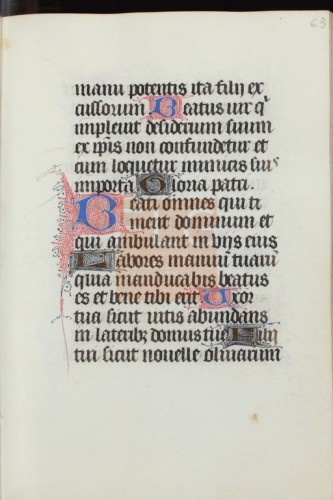 63
manu potentis ita filij ex
cussorum Beatus uir q̃
impleuit desiderium suum
ex ip̃is non confundetur et
cum loquetur inimicis suis
in porta Gloria patri.
Beati omnes qui ti
ment dominum et
qui ambulant in vijs eius
Labores manuum tuarum
quia manducabis beatus
es et bene tibi erit Uxor
tua sicut uitis abundans
in lateribꝫ domus tue Filij
tui sicut nouelle oliuarum